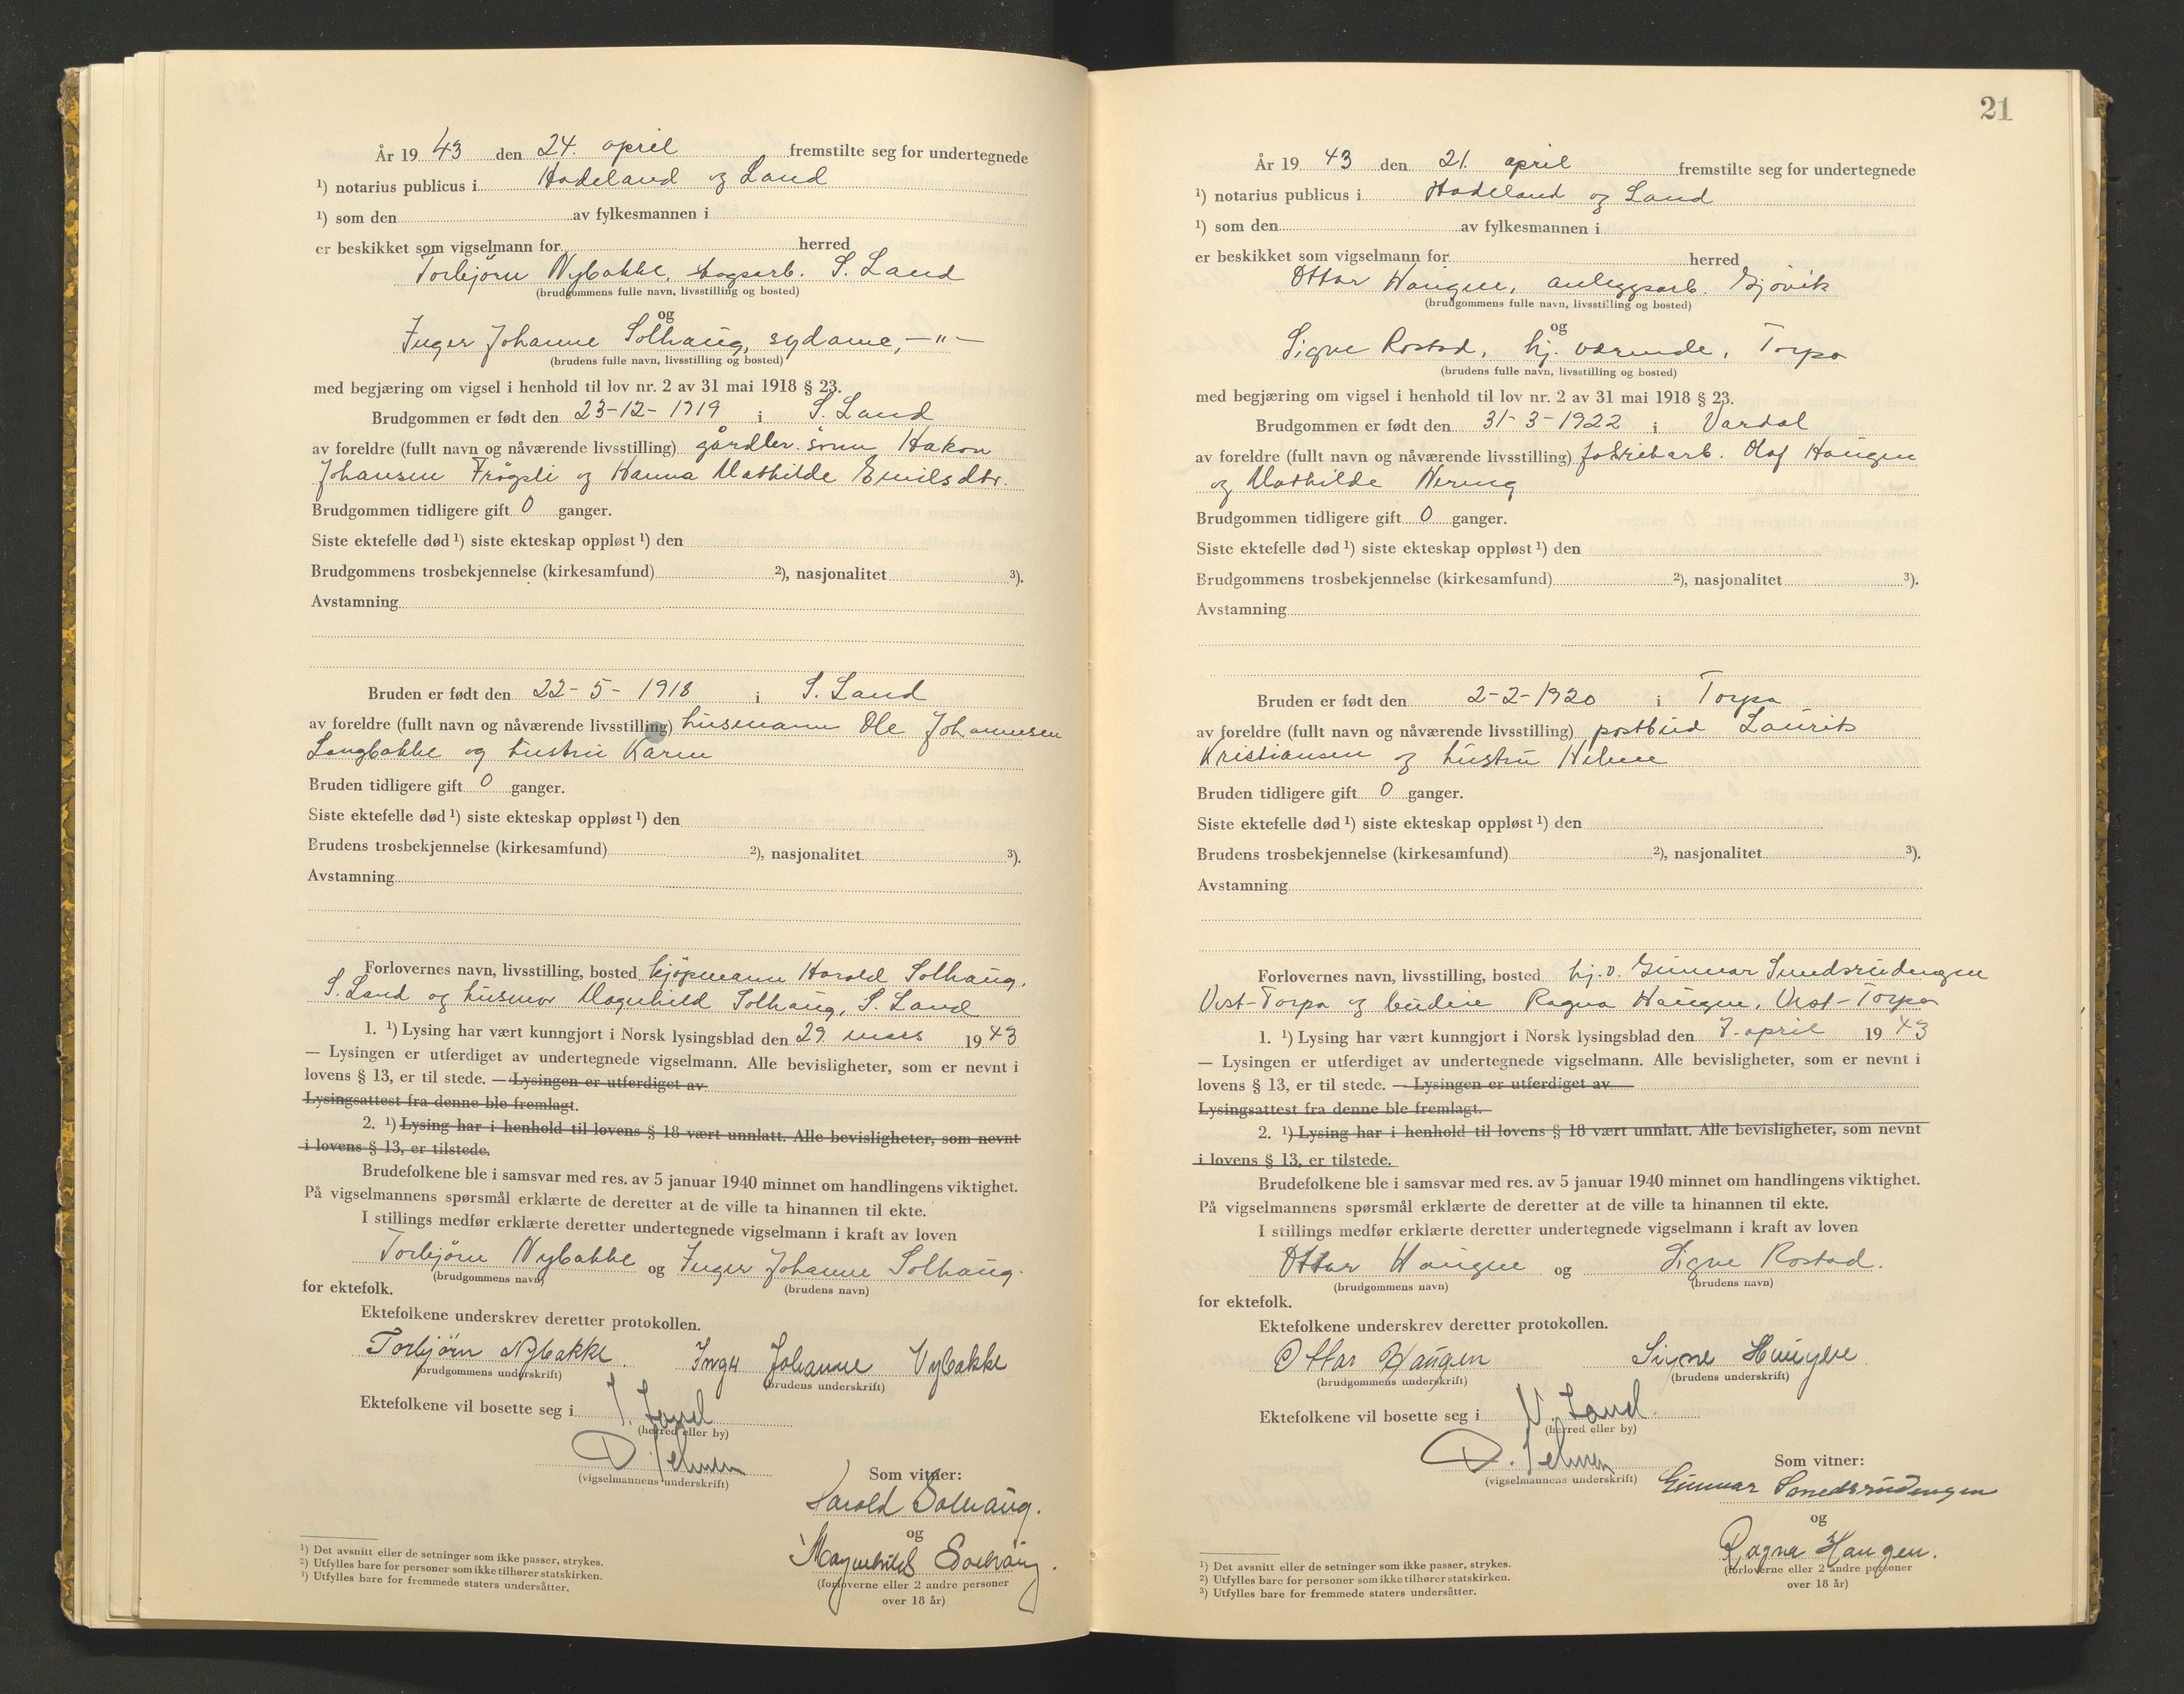 År 19 43 den 24. april fremstilte seg for undertegnede
¹) notarius publicus i Hadeland og Land
¹) som den av fylkesmannen i
er beskikket som vigselmann for herred
Torbjörn Nybakke, skogsarb. S. Land
(brudgommens fulle navn, livsstilling og bosted)
og
Inger Johanne Solhaug, sydame, —"—
(brudens fulle navn, livsstilling og bosted)
med begjæring om vigsel i henhold til lov nr. 2 av 31 mai 1918 § 23.
Brudgommen er født den 23-12-1919 i S. Land
av foreldre (fullt navn og nåværende livsstilling) gårdbr. sönn Hakon
Johansen Frögsli og Hanna Mathilde Emilsdtr.
Brudgommen tidligere gift 0 ganger.
Siste ektefelle død ¹) siste ekteskap oppløst ¹) den
Brudgommens trosbekjennelse (kirkesamfund) ²), nasjonalitet ³).
Avstamning
Bruden er født den 22-5-1918 i S. Land
av foreldre (fullt navn og nåværende livsstilling) husmann Ole Johannesen
Langbakke og hustru Karen
Bruden tidligere gift 0 ganger.
Siste ektefelle død ¹) siste ekteskap oppløst ¹) den
Brudens trosbekjennelse (kirkesamfund) ²), nasjonalitet ³).
Avstamning
Forlovernes navn, livsstilling, bosted kjöpmann Harald Solhaug,
S. Land og husmor Magnhild Solhaug, S. Land
1. ¹) Lysing har vært kunngjort i Norsk lysingsblad den 29 mars 19 43
— Lysingen er utferdiget av undertegnede vigselmann. Alle bevisligheter, som er nevnt i
lovens § 13, er til stede. — Lysingen er utferdiget av
Lysingsattest fra denne ble fremlagt.
2. ¹) Lysing har i henhold til lovens § 18 vært unnlatt. Alle bevisligheter, som nevnt
i lovens § 13, er tilstede.
Brudefolkene ble i samsvar med res. av 5 januar 1940 minnet om handlingens viktighet.
På vigselmannens spørsmål erklærte de deretter at de ville ta hinannen til ekte.
I stillings medfør erklærte deretter undertegnede vigselmann i kraft av loven
Torbjörn Nybakke og Inger Johanne Solhaug.
(brudgommens navn) (brudens navn)
for ektefolk.
Ektefolkene underskrev deretter protokollen.
Torbjörn Nybakke. Inger Johanne Nybakke
(brudgommens underskrift) (brudens underskrift)
Ektefolkene vil bosette seg i S. Land
(herred eller by)
(vigselmannens underskrift)
Som vitner:
Harald Solhaug.
og
Magnhild Solhaug.
(forloverne eller 2 andre personer
over 18 år)
¹) Det avsnitt eller de setninger som ikke passer, strykes.
²) Utfylles bare for personer som ikke tilhører statskirken.
³) Utfylles bare for fremmede staters undersåtter.
21
År 19 43 den 21. april fremstilte seg for undertegnede
¹) notarius publicus i Hadeland og Land
¹) som den av fylkesmannen i
er beskikket som vigselmann for herred
Ottar Haugen, anleggsarb. Gjövik
(brudgommens fulle navn, livsstilling og bosted)
og
Signe Rostad, hj. værende, Torpa
(brudens fulle navn, livsstilling og bosted)
med begjæring om vigsel i henhold til lov nr. 2 av 31 mai 1918 § 23.
Brudgommen er født den 31-3-1922 i Vardal
av foreldre (fullt navn og nåværende livsstilling) fabrikarb. Olaf Haugen
og Mathilde Nering
Brudgommen tidligere gift 0 ganger.
Siste ektefelle død ¹) siste ekteskap oppløst ¹) den
Brudgommens trosbekjennelse (kirkesamfund) ²), nasjonalitet ³).
Avstamning
Bruden er født den 2-2-1920 i Torpa
av foreldre (fullt navn og nåværende livsstilling) postbud Laurits
Kristiansen og hustru Helene
Bruden tidligere gift 0 ganger.
Siste ektefelle død ¹) siste ekteskap oppløst ¹) den
Brudens trosbekjennelse (kirkesamfund) ²), nasjonalitet ³).
Avstamning
Forlovernes navn, livsstilling, bosted hj.v. Gunnar Smedsrudengen
Vest-Torpa og budeie Ragna Haugen, Vest-Torpa
1. ¹) Lysing har vært kunngjort i Norsk lysingsblad den 7. april 19 43
— Lysingen er utferdiget av undertegnede vigselmann. Alle bevisligheter, som er nevnt i
lovens § 13, er til stede. — Lysingen er utferdiget av
Lysingsattest fra denne ble fremlagt.
2. ¹) Lysing har i henhold til lovens § 18 vært unnlatt. Alle bevisligheter, som nevnt
i lovens § 13, er tilstede.
Brudefolkene ble i samsvar med res. av 5 januar 1940 minnet om handlingens viktighet.
På vigselmannens spørsmål erklærte de deretter at de ville ta hinannen til ekte.
I stillings medfør erklærte deretter undertegnede vigselmann i kraft av loven
Ottar Haugen og Signe Rostad.
(brudgommens navn) (brudens navn)
for ektefolk.
Ektefolkene underskrev deretter protokollen.
Ottar Haugen Signe Haugen
(brudgommens underskrift) (brudens underskrift)
Ektefolkene vil bosette seg i N. Land.
(herred eller by)
(vigselmannens underskrift)
Som vitner:
Gunnar Smedsrudengen
og
Ragna Haugen.
(forloverne eller 2 andre personer
over 18 år)
¹) Det avsnitt eller de setninger som ikke passer, strykes.
²) Utfylles bare for personer som ikke tilhører statskirken.
³) Utfylles bare for fremmede staters undersåtter.